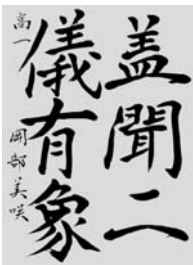 蓋聞二
儀有象
高一 岡部美咲